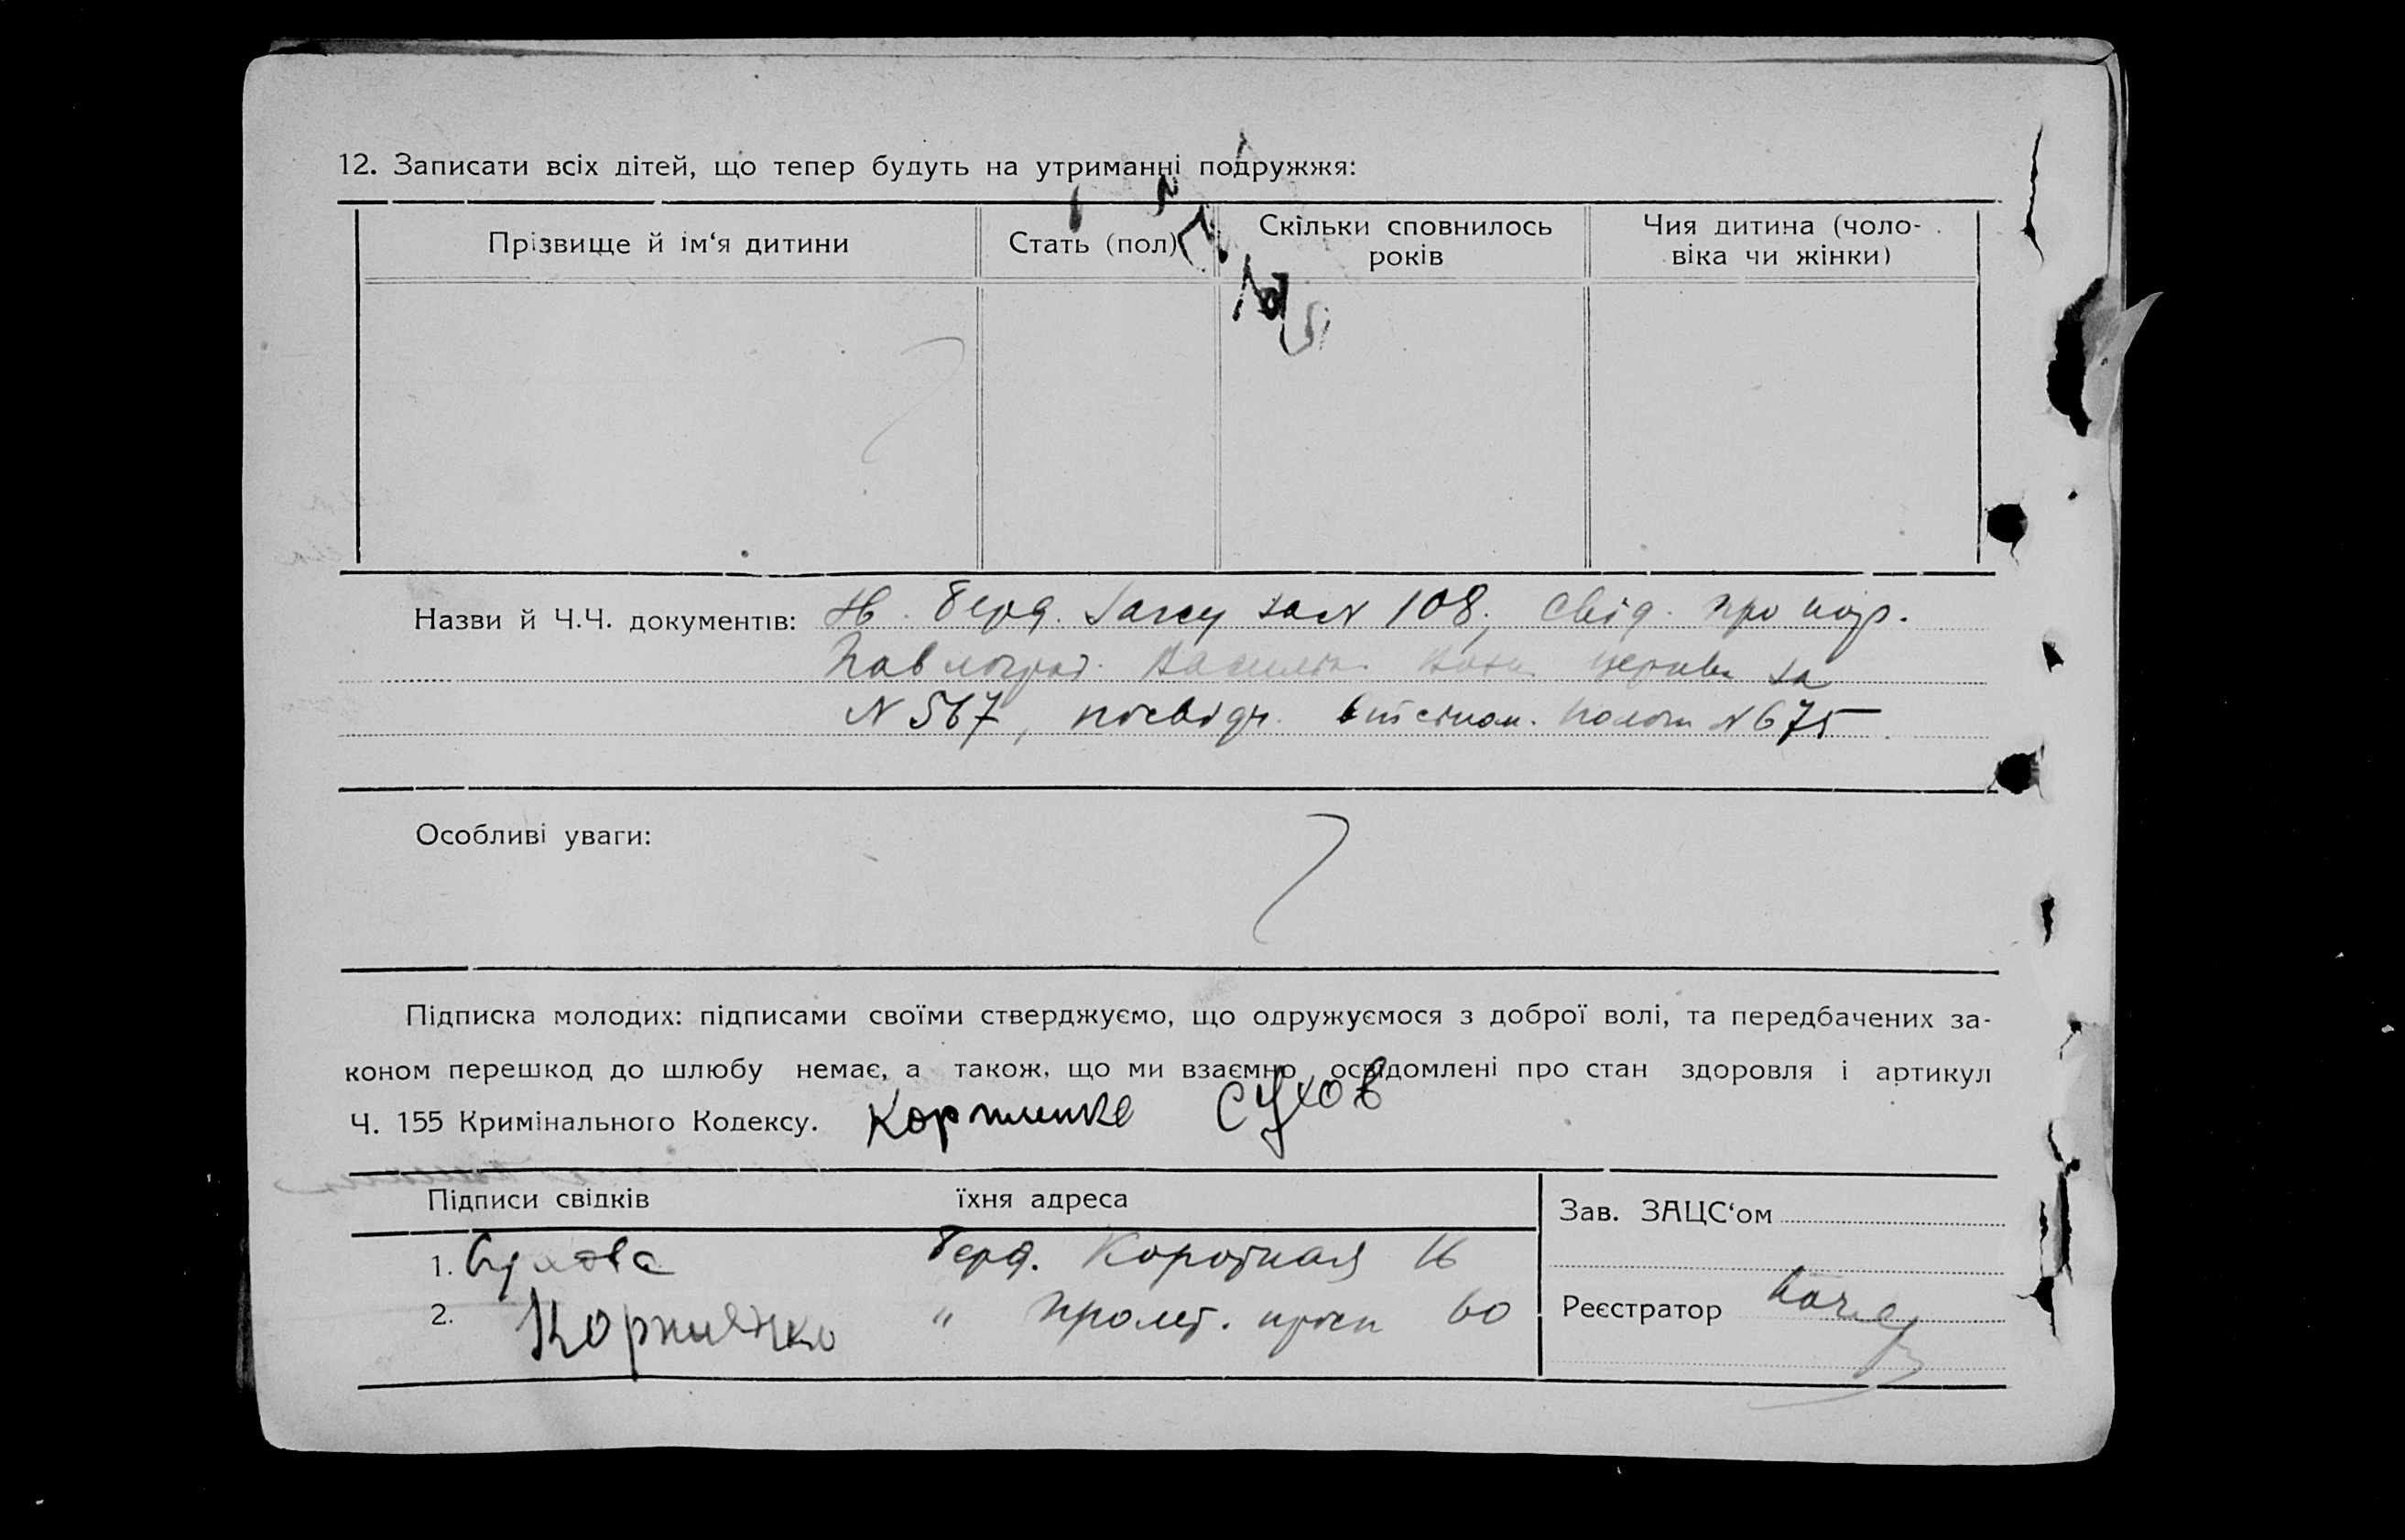 12. Записати всіх дітей, що тепер будуть на утриманні подружжя:
Прізвище й ім‘я дитини
Стать (пол)
Скільки сповнилось
років
Чия дитина (чоло-
віка чи жінки)
Назви й Ч.Ч. документів: Берд. за N 108; свід. про
Павлоград. церкви за
N 567, посвідч. N 675
Особливі уваги:
Підписка молодих: підписами своїми стверджуємо, що одружуємося з доброї волі, та передбачених за-
коном перешкод до шлюбу немає, а також, що ми взаємно освідомлені про стан здоровля і артикул
Ч. 155 Кримінального Кодексу. Сухов
Підписи свідків їхня адреса
1. Сухова Берд. Коротная 16
2. Корниенко " Пролет. просп 60
Зав. ЗАЦС‘ом
Реєстратор